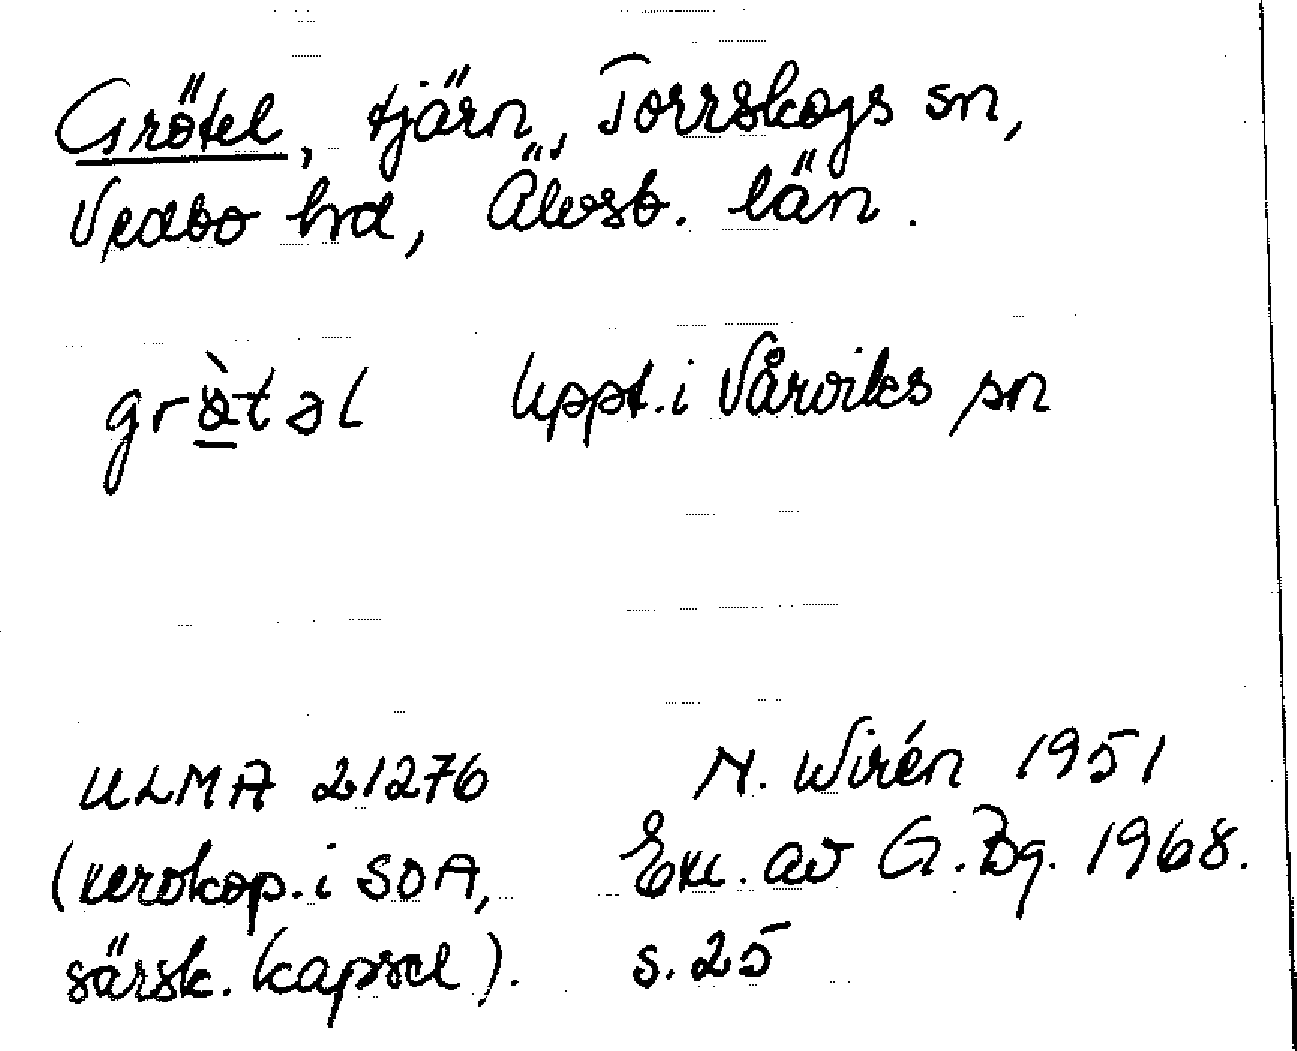 Grötel, tjärn, Torrskogs sn,
Vedbo hd, Älvsb. län.
grə̀təl Uppt. i Vårviks sn
ULMA 21276 N. Wirén 1951
(xerokop. i SOA, Exc. av G. Bg. 1968.
särsk. kapsel). s. 25